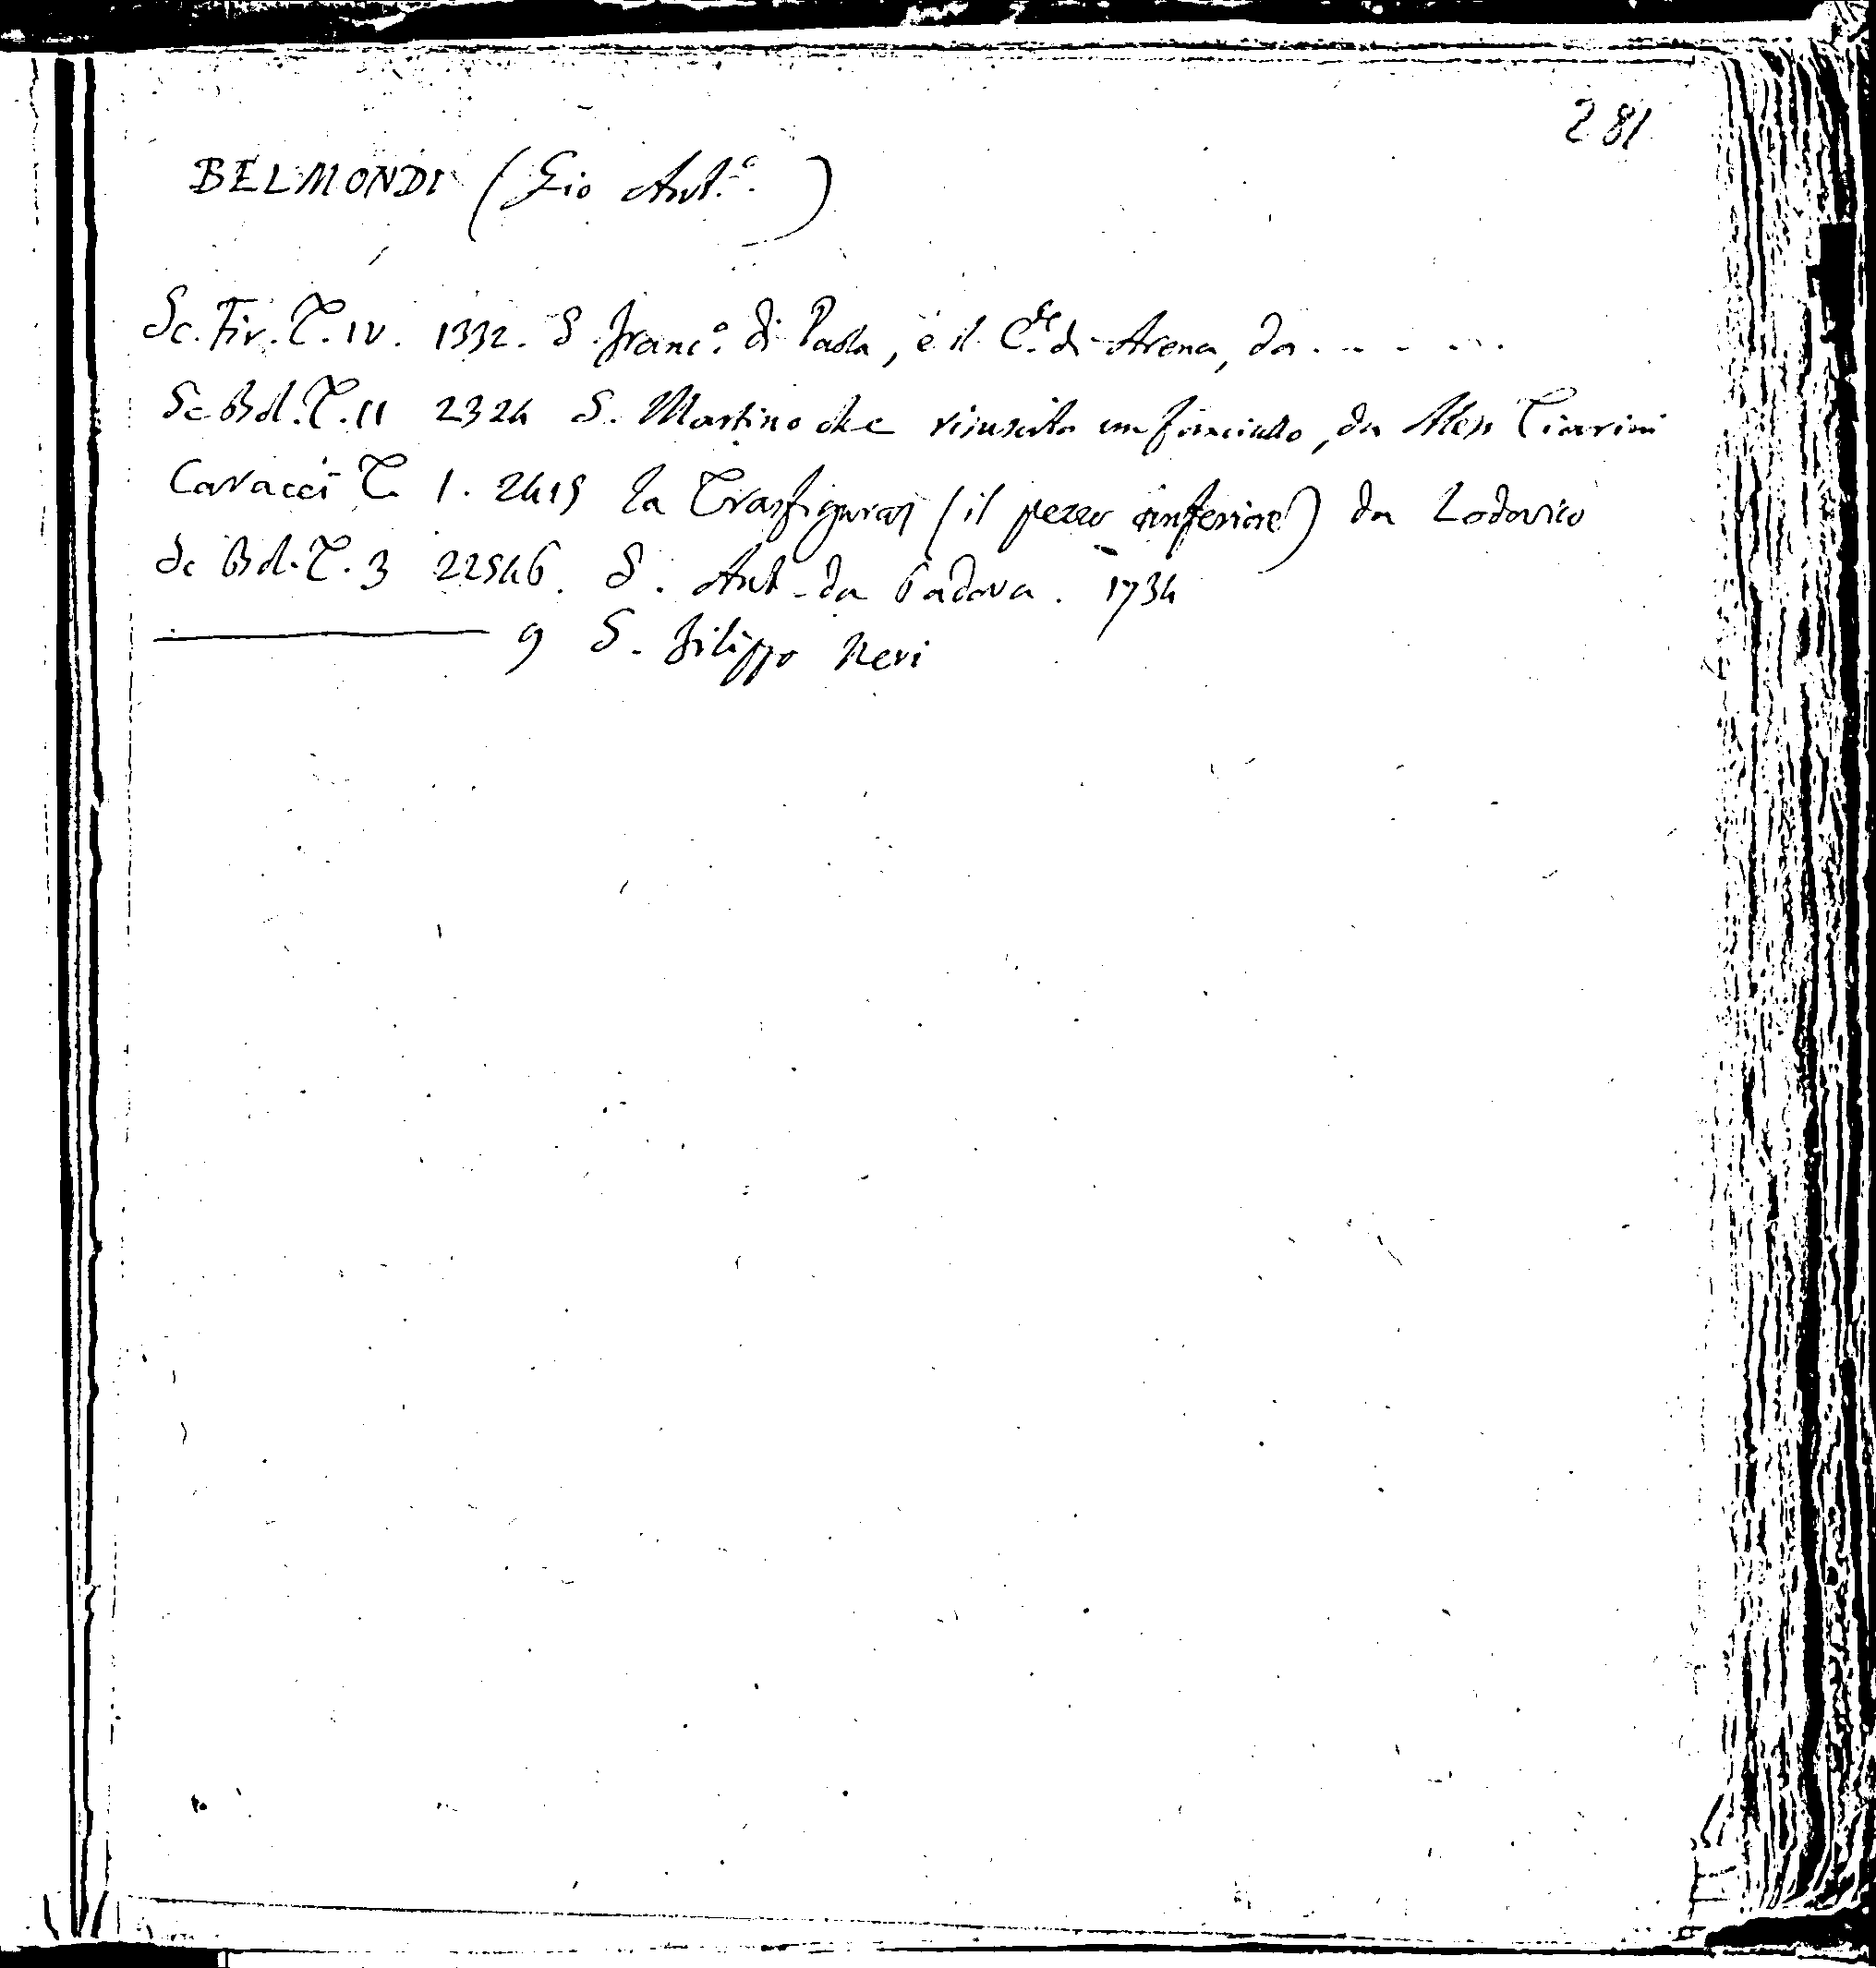 281
BELMONDI (Gio Ant.º)
Sc. Fir. T. IV. 1332. S. Franc.º di Paola, e il C.te di Arena, da . . . . . .
Sc Bol. T. II 2324 S. Martino che risuscita un fanciullo, da Aless Tiarini
Caracci T. 1. 2415 La Trasfiguraz (il pezzo inferiore) da Lodovico
Sc Bol. T. 3 22546. S. Ant. da Padova. 1734
9 S. Filippo Neri